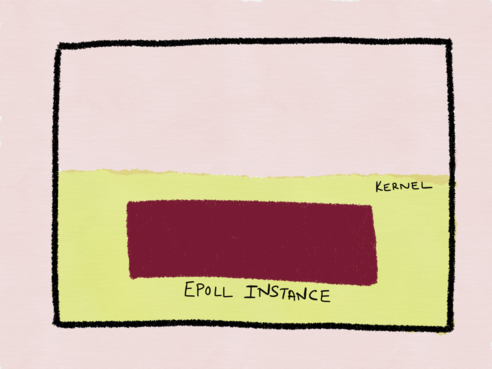 KERNEL
EPOLL INSTANCE